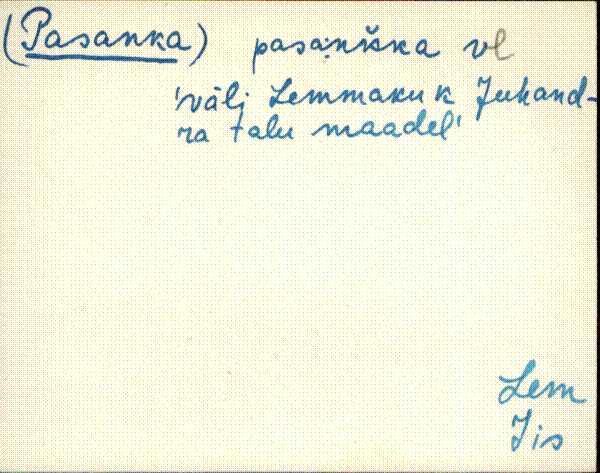 (Pasanka) pasaniška vl
'välj Lemmaku k Juhand-
ra talu maadel'
Lem
Jis